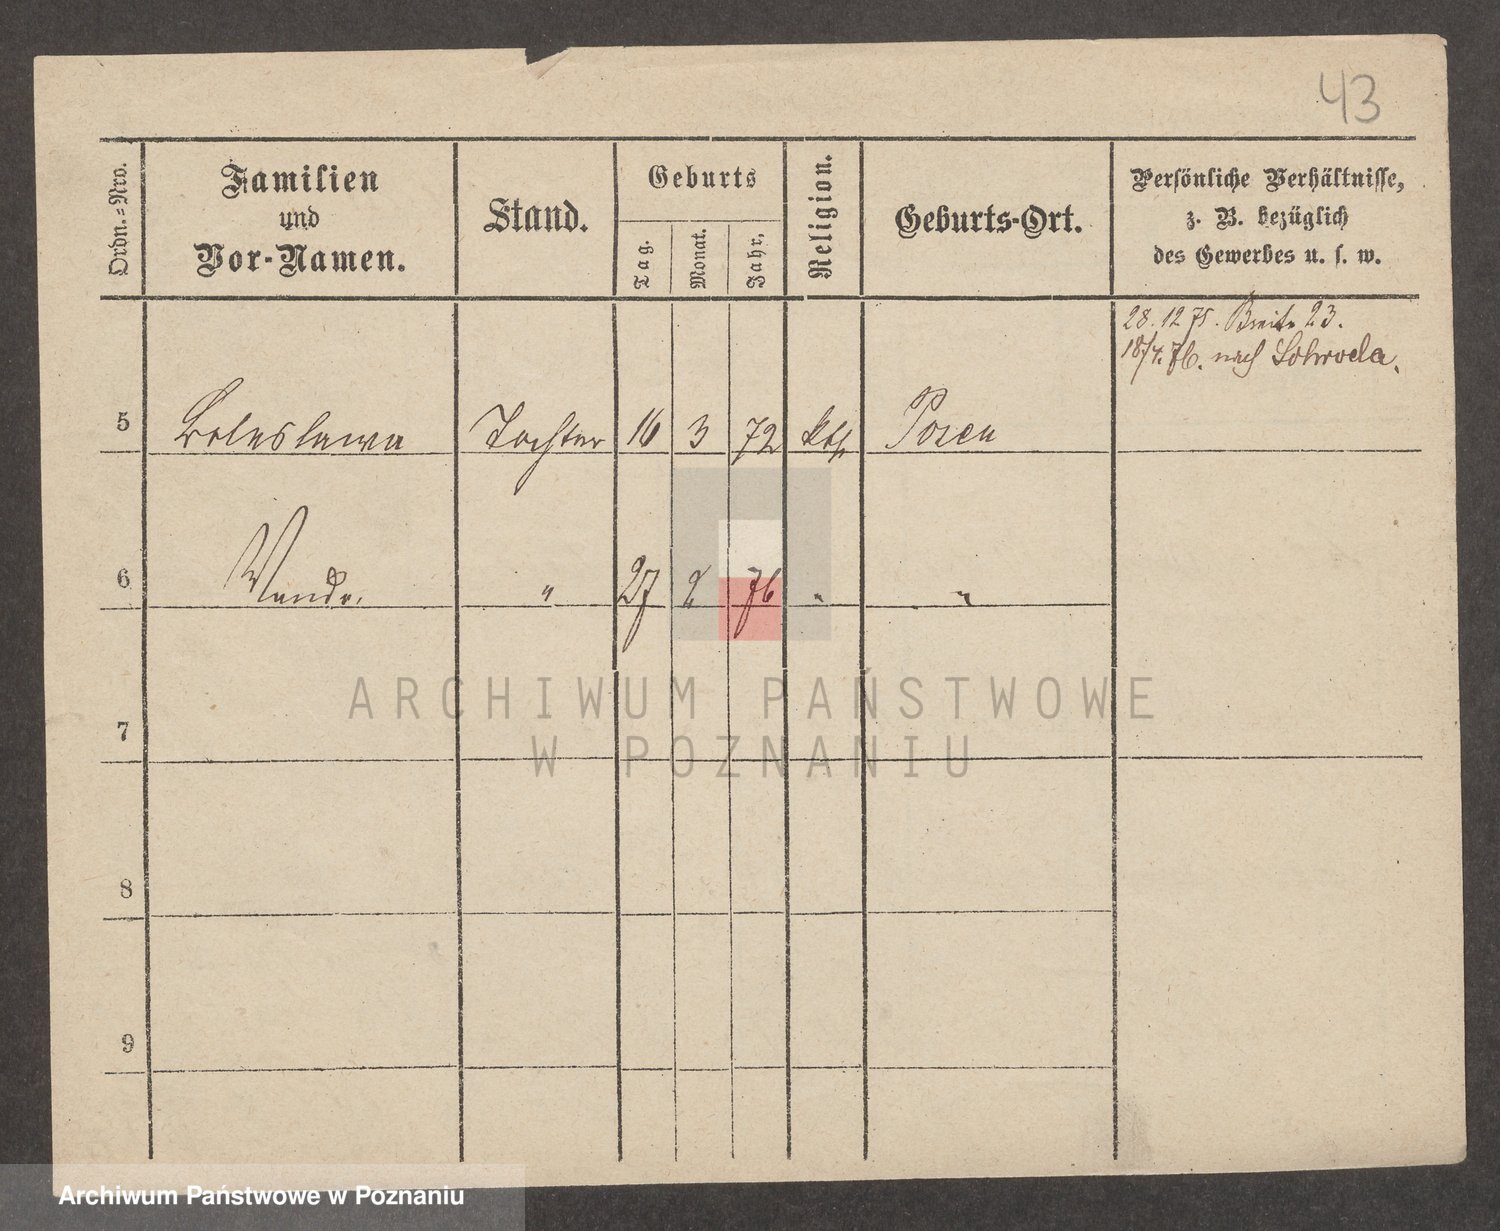 43
Ordn.=Nro.
Familien
und
Vor-Namen.
Stand.
Geburts
Tag.
Monat.
Jahr.
Religion.
Geburts-Ort.
Persönliche Verhältnisse,
z. B. bezüglich
des Gewerbes u. s. w.
28. 12 75. Breite 23.
18/4. 76. nach Schroda.
5 Boleslawa Tochter 16 3 72 kth Posen
6 Wanda. " 27 2 76 " "
7
8
9
ARCHIWUM PAŃSTWOWE
W POZNANIU
Archiwum Państwowe w Poznaniu